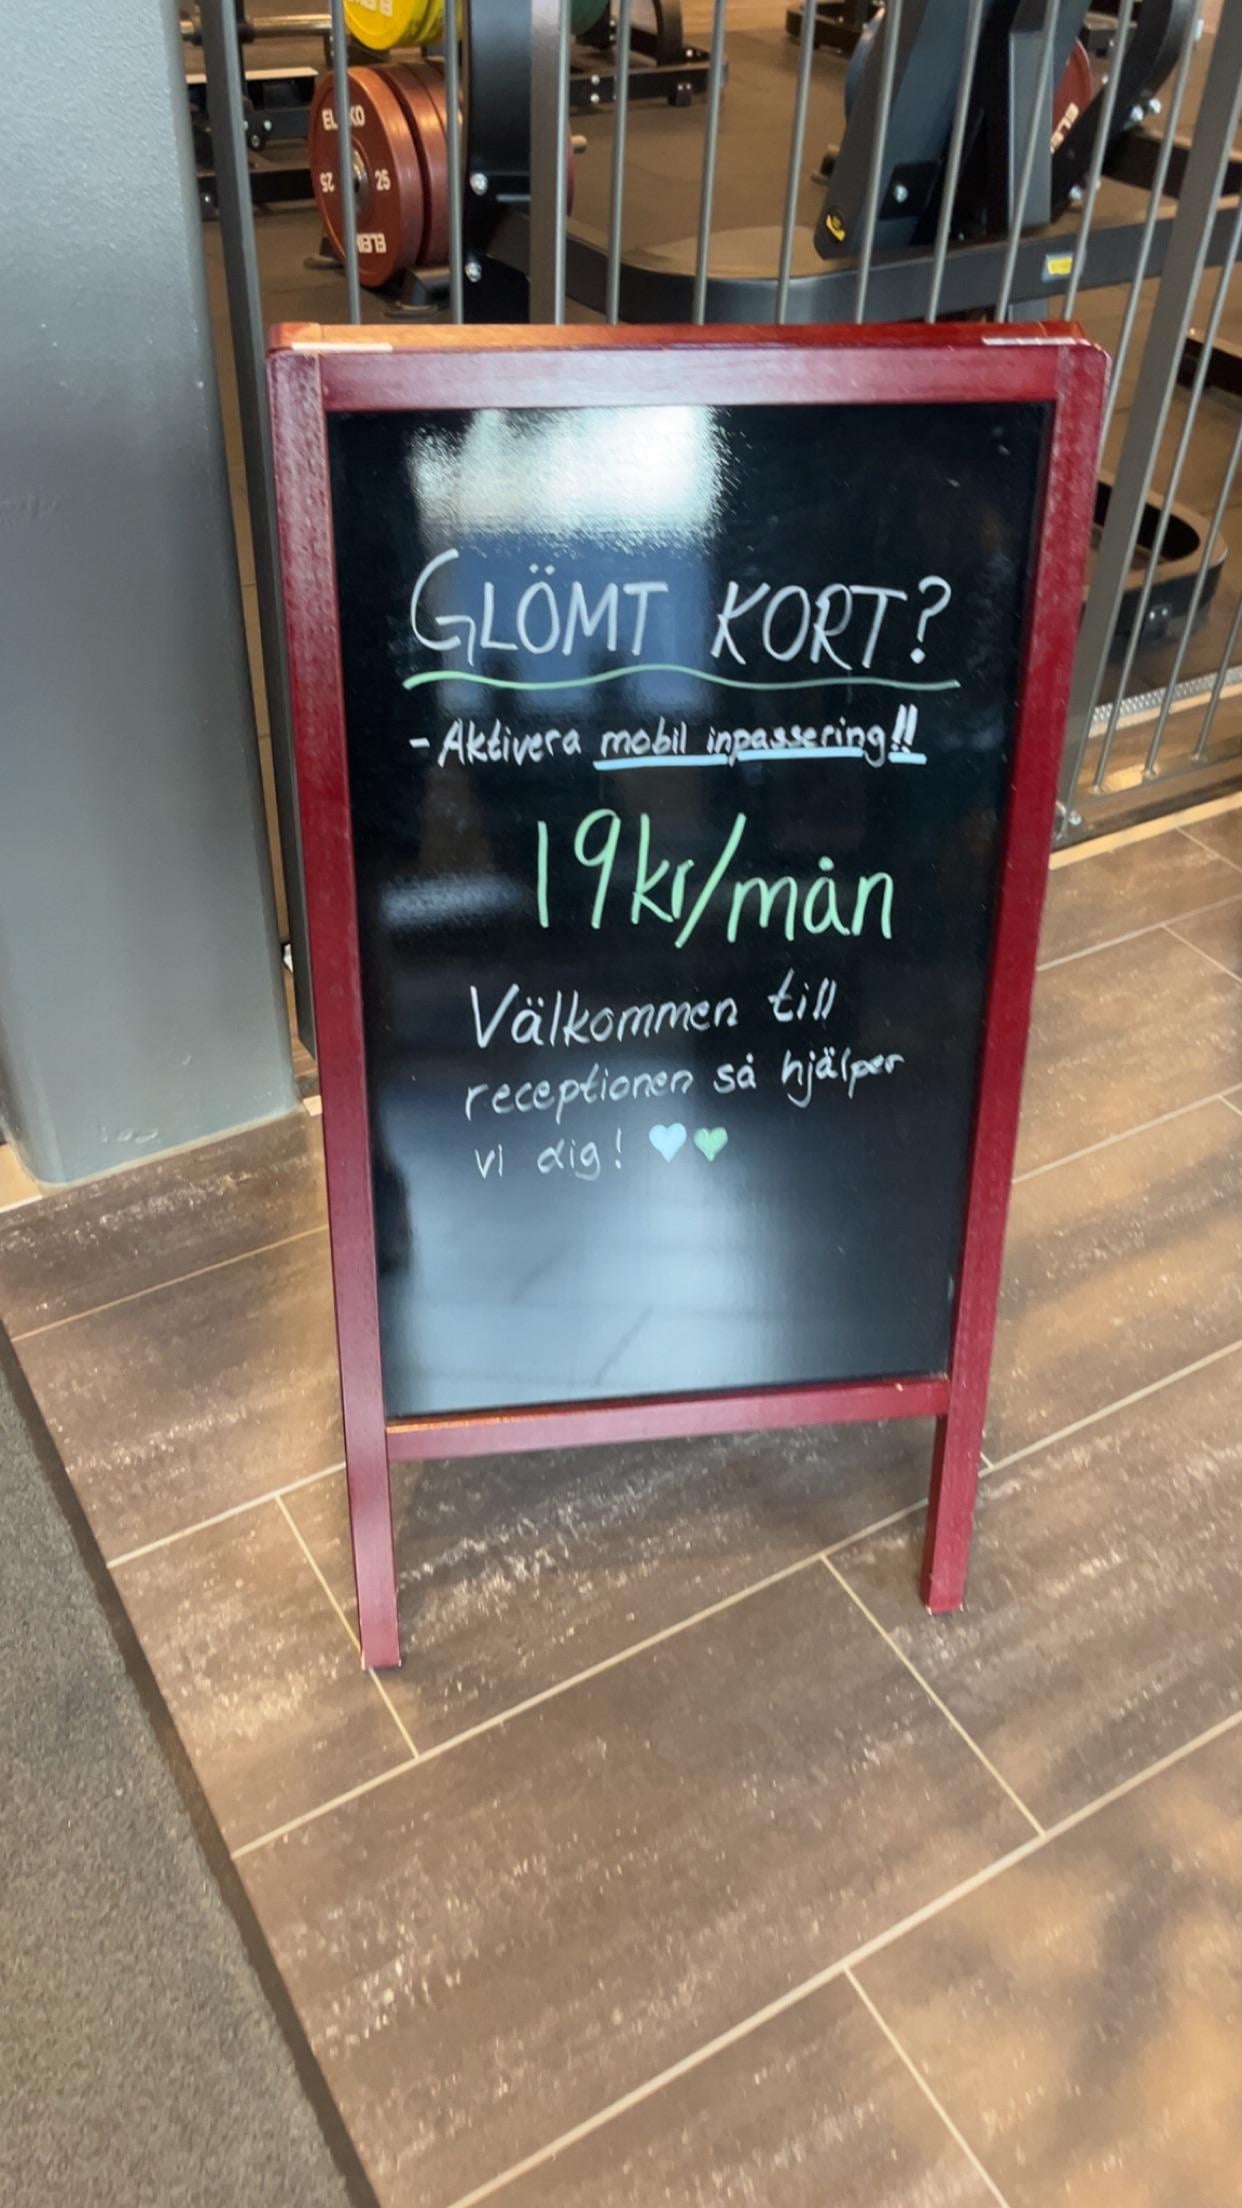 ELEIKO
25 25
ELEIKO
GLÖMT KORT?
- Aktivera mobil inpassering!!
19kr/mån
Välkommen till
receptionen så hjälper
vi dig! 🩵💚